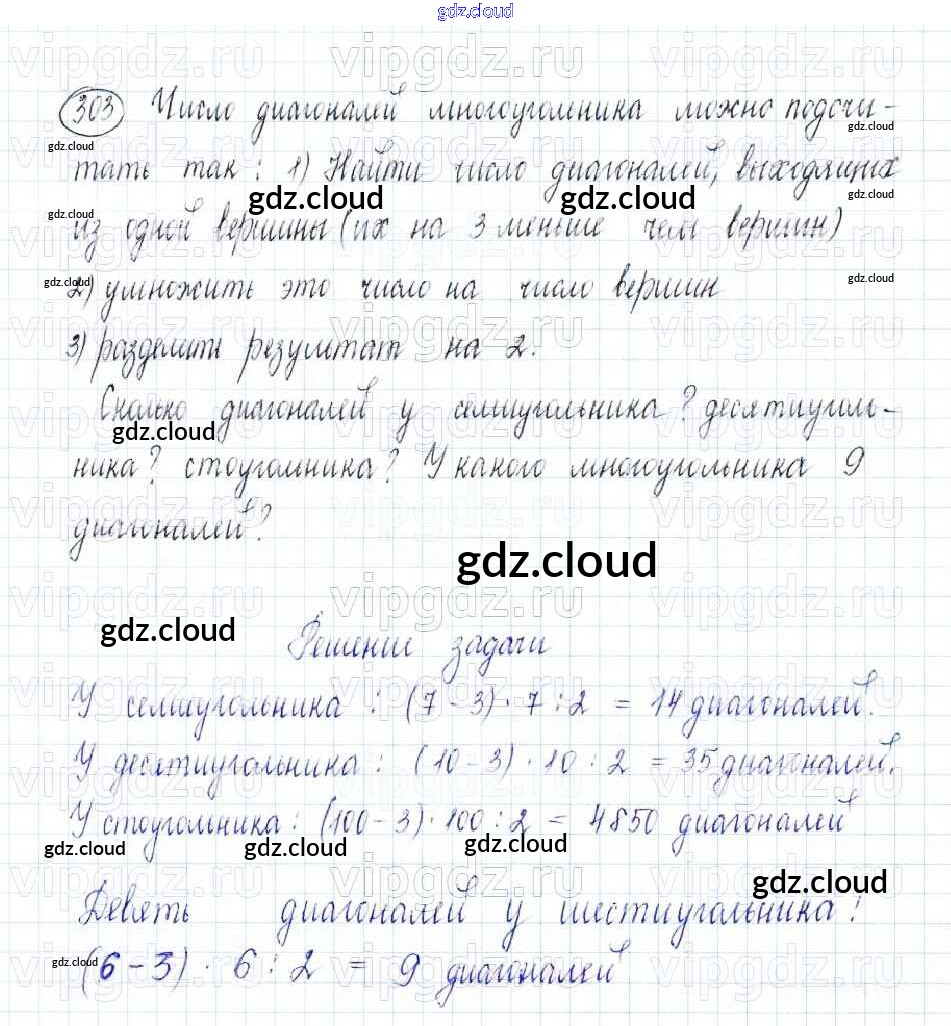 gdz.cloud
303 Число диагоналей многоугольника можно подсчи-
gdz.cloud gdz.cloud
тать так: 1) Найти число диагоналей, выходящих
gdz.cloud gdz.cloud gdz.cloud
из одной вершины (их на 3 меньше чем вершин)
gdz.cloud gdz.cloud
2) умножить это число на число вершин
3) разделить результат на 2.
Сколько диагоналей у семиугольника? десятиуголь-
gdz.cloud
ника? стоугольника? У какого многоугольника 9
диагоналей?
gdz.cloud
gdz.cloud
Решение задачи
У семиугольника: (7-3)·7:2 = 14 диагоналей.
У десятиугольника: (10-3)·10:2 = 35 диагоналей.
У стоугольника: (100-3)·100:2 = 4850 диагоналей
gdz.cloud gdz.cloud gdz.cloud
gdz.cloud
Девять диагоналей у шестиугольника!
gdz.cloud
(6-3)·6:2 = 9 диагоналей
vipgdz.ru vipgdz.ru vipgdz.ru